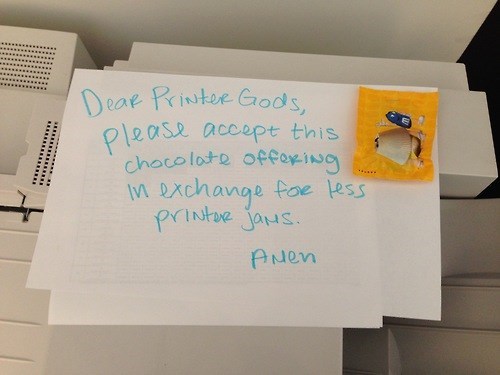 Dear Printer Gods,
please accept this
chocolate offering
in exchange for less
printer jams.
Amen